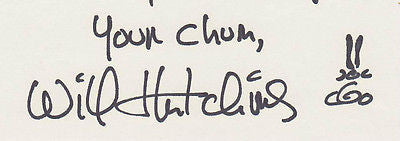 Your chum,
Will Hutchins